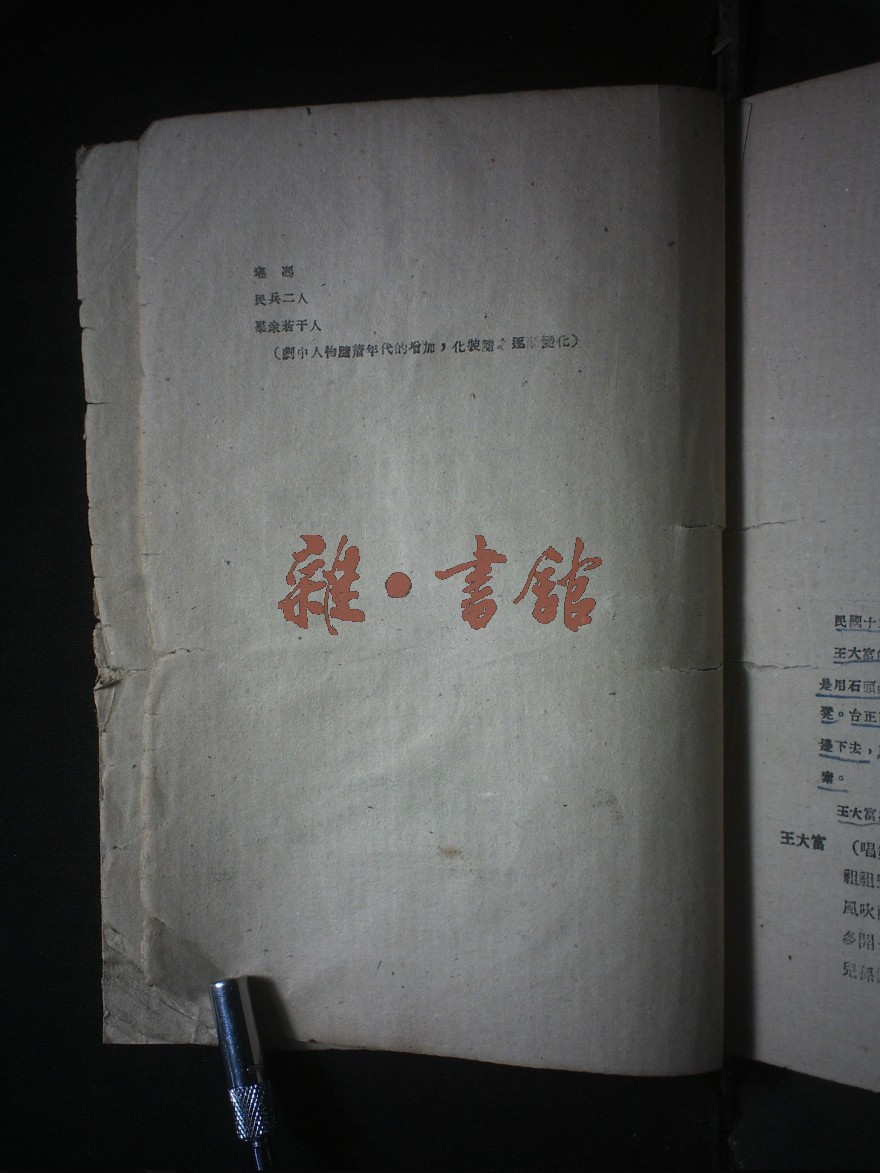 民兵二人
羣衆若干人
(劇中人物隨着年代的增加，化裝隨之逐漸變化)
雜·書館
民國十
王大富
是用石頭
凳。台正
邊下去，
案。
王大富
王大富 (唱
祖祖
風吹
多開
兒孫